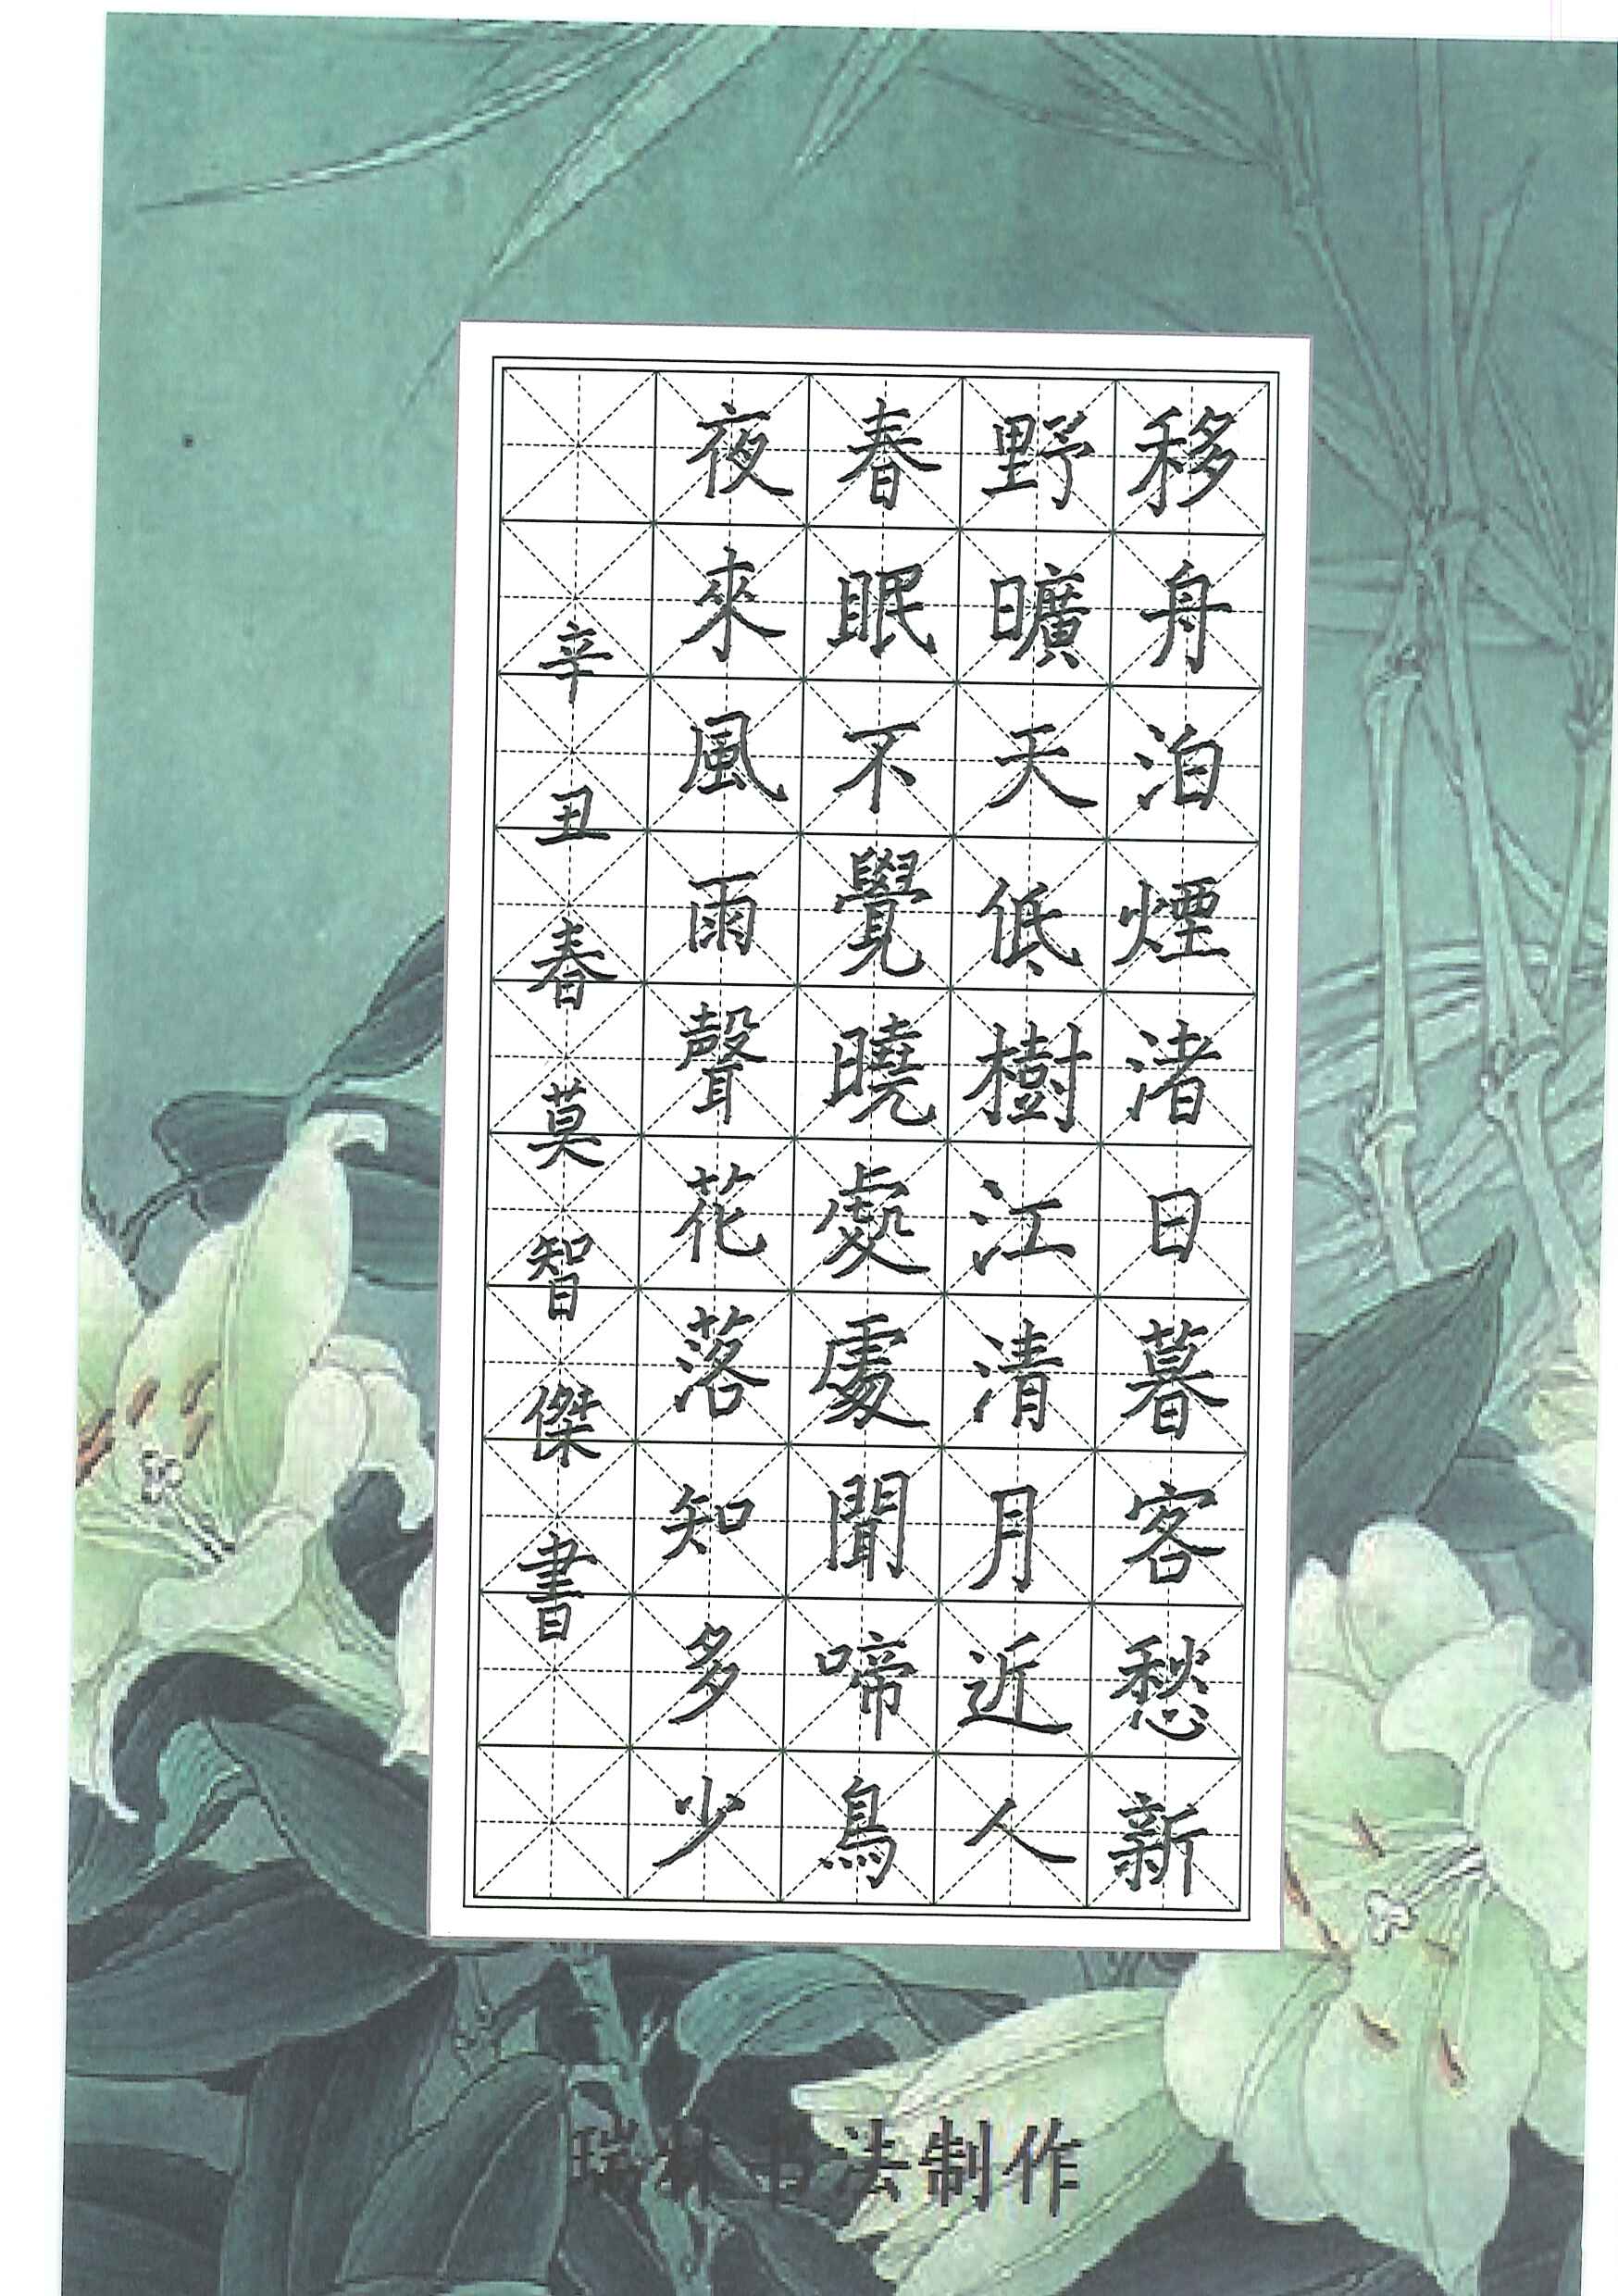 移舟泊煙渚日暮客愁新
野曠天低樹江清月近人
春眠不覺曉處處聞啼鳥
夜來風雨聲花落知多少
辛丑春莫智傑書
瑞林书法制作